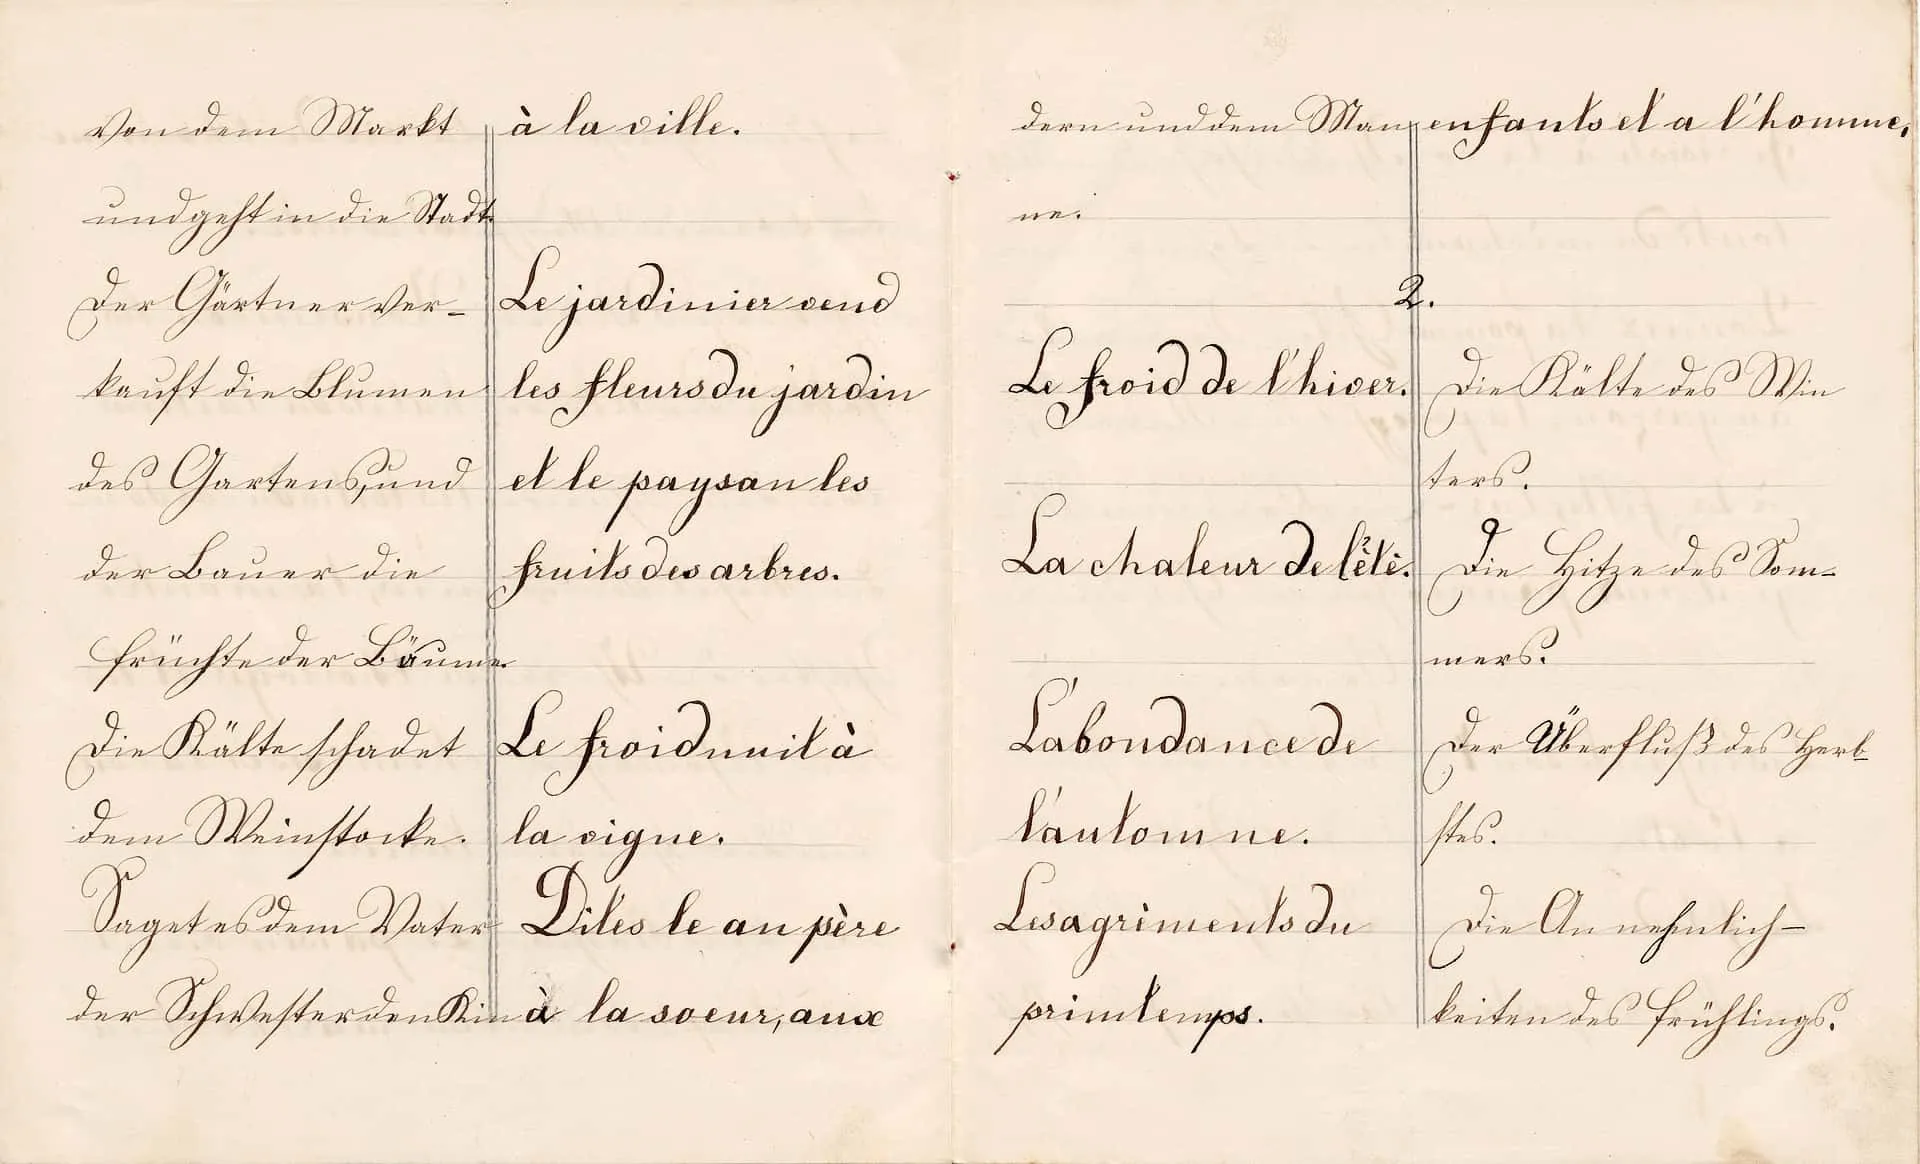 von dem Markt
und geht in die Stadt.
Der Gärtner ver-
kauft die Blumen
des Gartens, und
der Bauer die
früchte der Bäume.
Die Kälte schadet
dem Weinstocke.
Saget es dem Vater
der Schwester den Kin
à la ville.
Le jardinier vend
les fleurs du jardin
et le paysan les
fruits des arbres.
Le froid nuit à
la vigne.
Dites le au père
à la soeur, aux
dern und dem Man
ne.
enfants et a l'homme.
2.
Le froid de l'hiver.
La chaleur de l'étè.
L'abondance de
l'automne.
Les agrèments du
printemps.
Die Kälte des Win
ters.
Die Hitze des Som-
mers.
Der Überfluß des Herb-
stes.
Die Annehmlich-
keiten des frühlings.